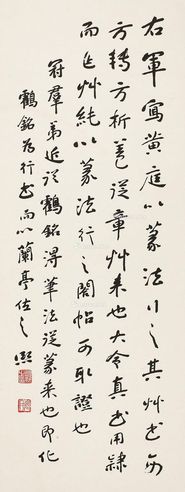 右軍寫黃庭以篆法行之其艸書亦
方轉方折蓋從章艸來也大令真書用隸
而作艸純以篆法行之閣帖可取證也
冠群弟近從鶴銘得筆法從篆來也即化
鶴銘為行書而以蘭亭佐之 熙